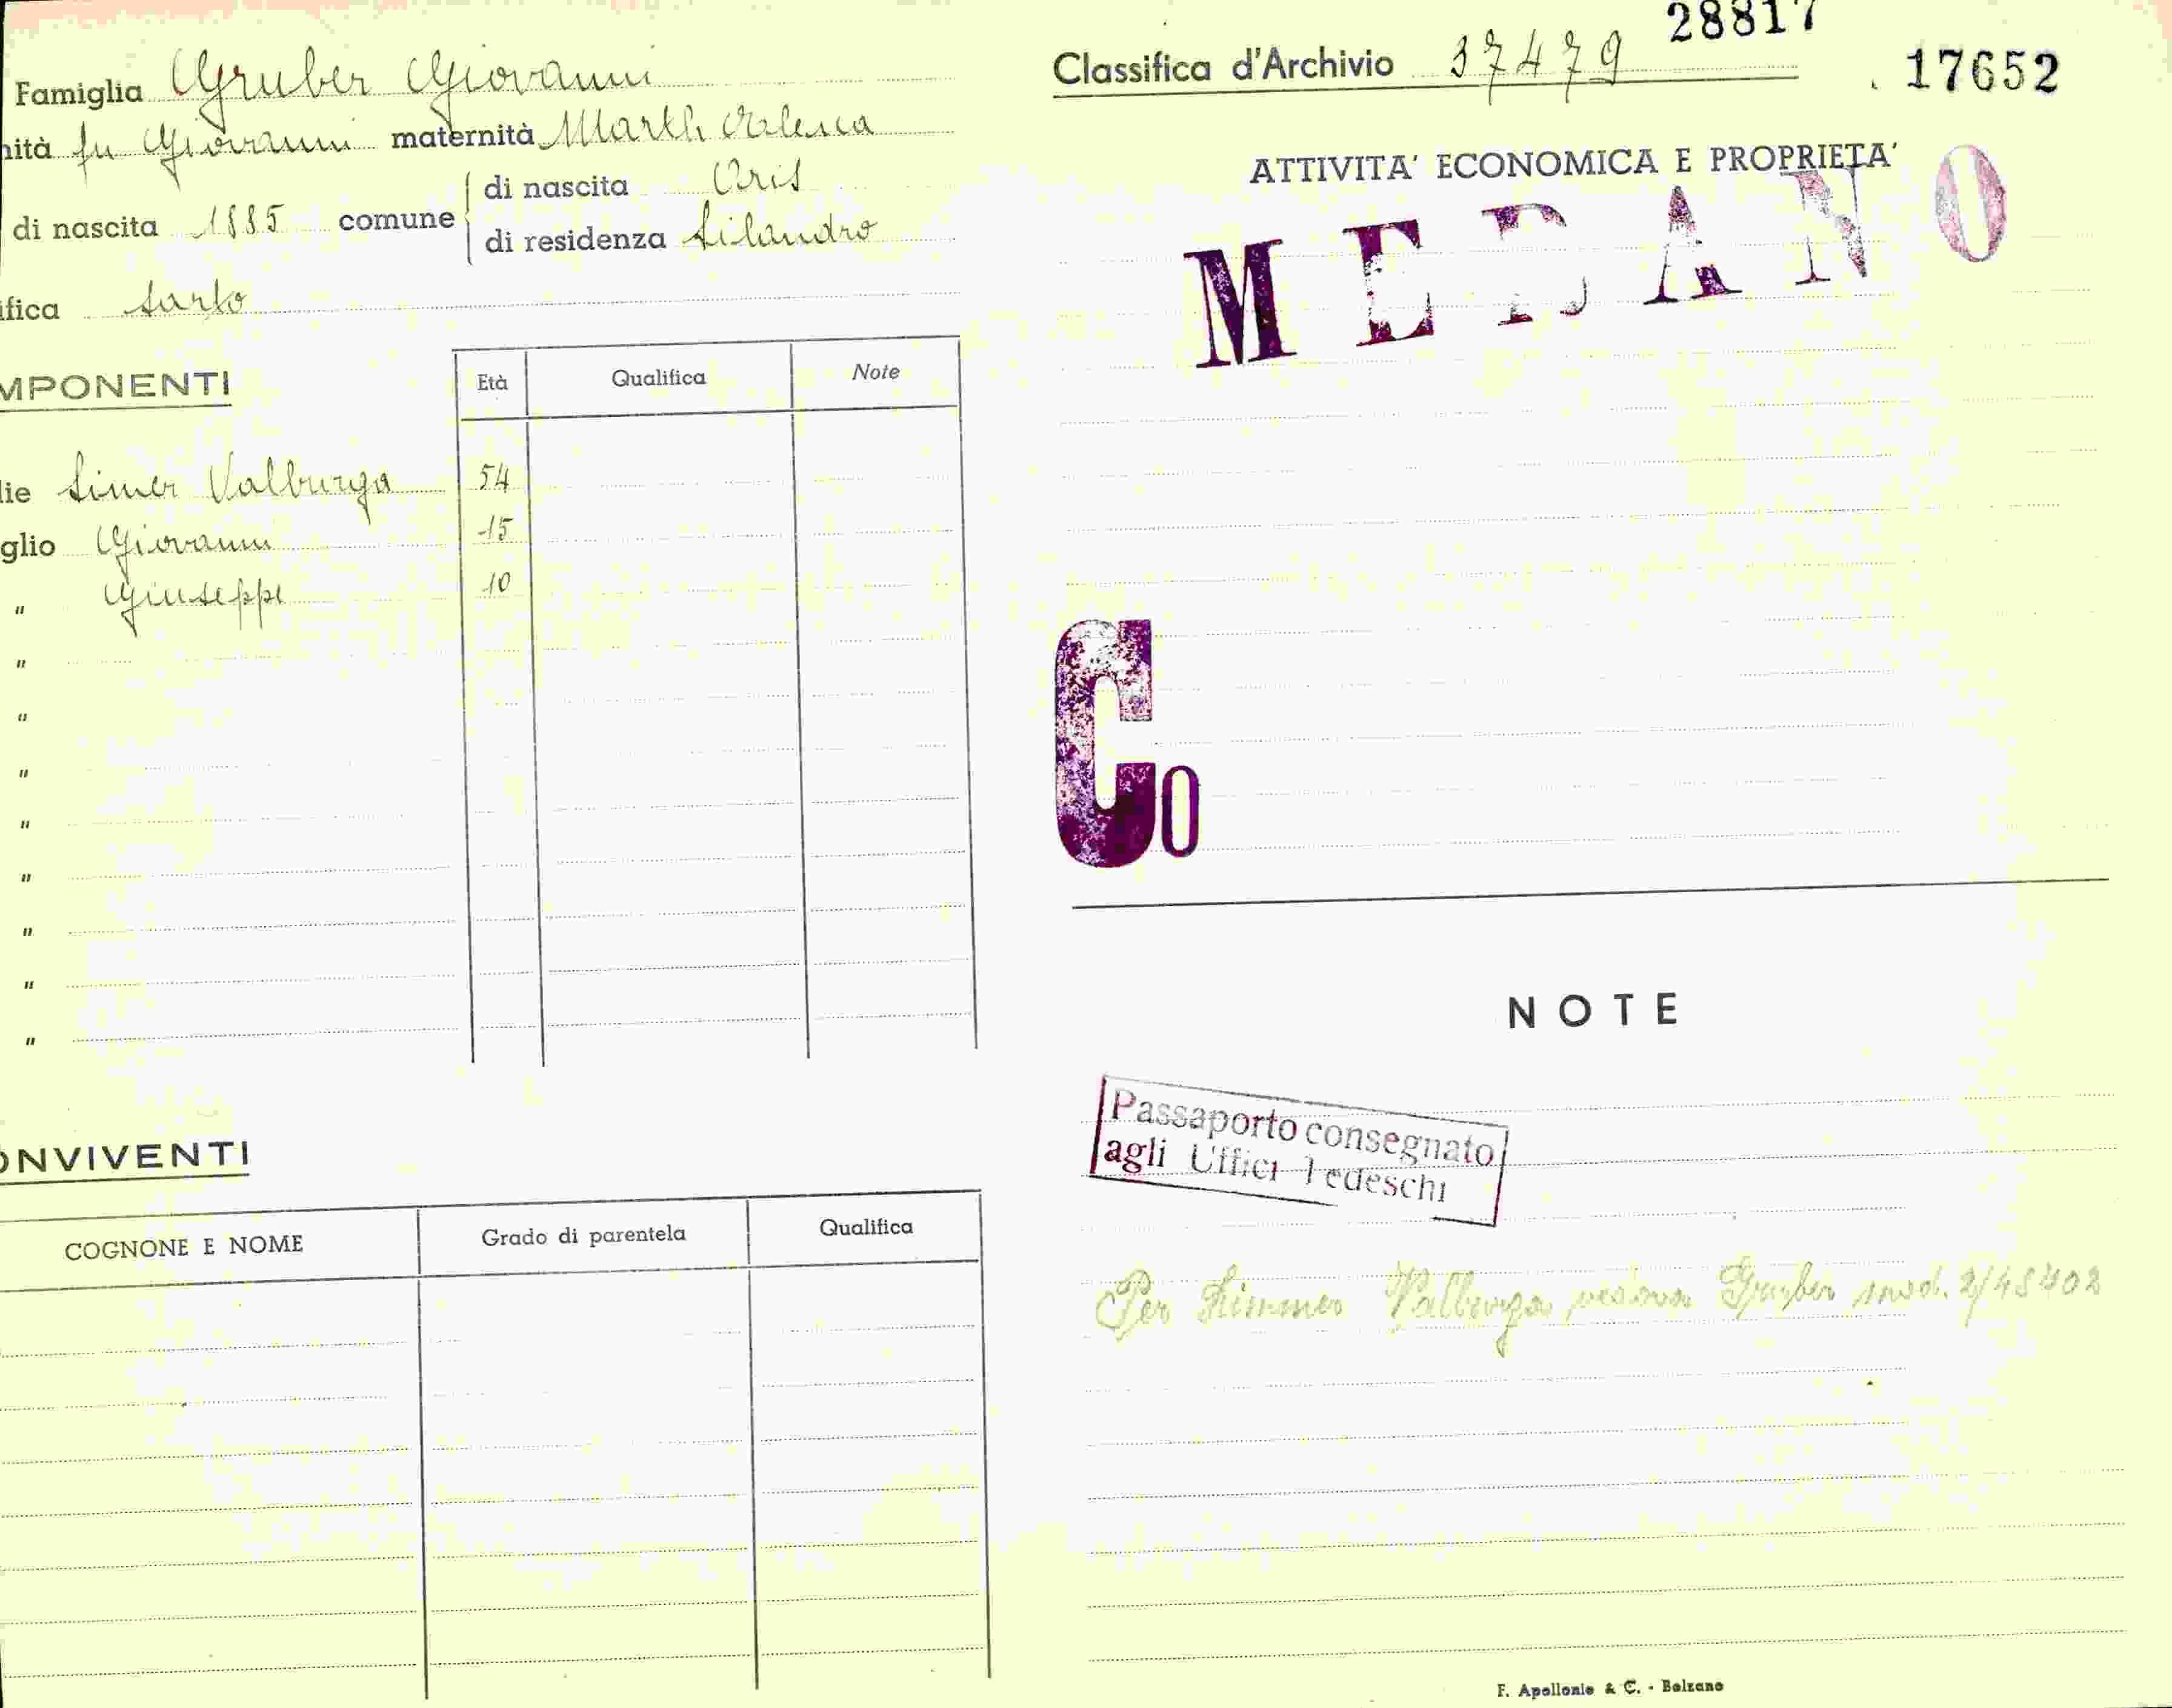 Famiglia Gruber Giovanni
nità fu Giovanni maternità Marth
di nascita 1885 comune
di nascita Oris
di residenza Silandro
ifica sarto
MPONENTI
Età Qualifica Note
lie Simer Valburga 54
glio Giovanni 15
" Giuseppe 10
"
"
"
"
"
"
"
"
ONVIVENTI
COGNONE E NOME Grado di parentela Qualifica
28817
Classifica d'Archivio 37479
17652
ATTIVITA' ECONOMICA E PROPRIETA'
MERANO
Co
NOTE
Passaporto consegnato
agli Uffici Tedeschi
Per Simmer Valburga vedova Gruber mod. 2/48402
F. Apollonio & C. - Bolzano